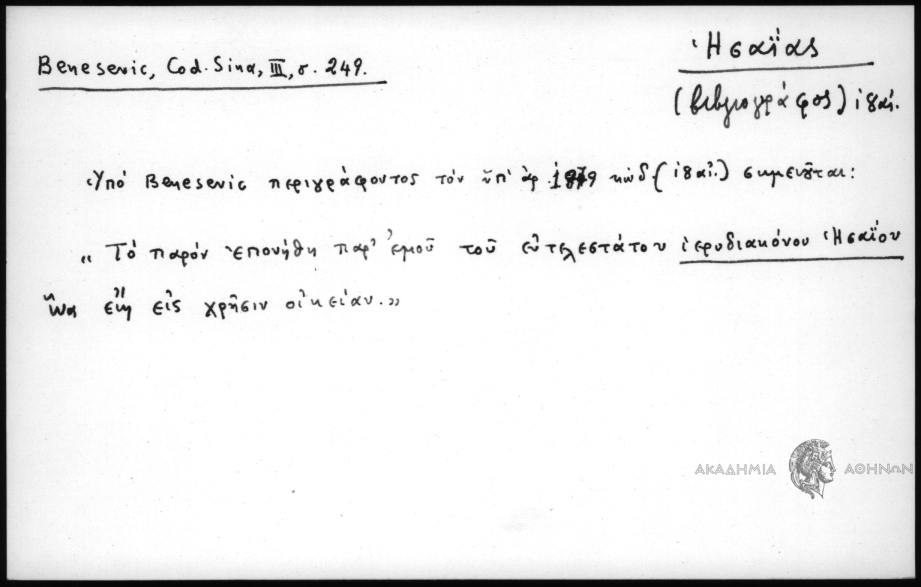 Benesevic, Cod. Sina, III, σ. 249.
Ἡσαΐας
(βιβλιογράφος) ιζ' αἰ.
Ὑπό Benesevic περιγράφοντος τόν ὑπ' ἀρ. κώδ (ιζ' αἰ.) σημειοῦται:
„ Τό παρόν ἐπονήθη παρ' ἐμοῦ τοῦ εὐτελεστάτου ἱεροδιακόνου Ἡσαΐου
ἵνα εἴη εἰς χρῆσιν οἰκείαν.»
ΑΚΑΔΗΜΙΑ ΑΘΗΝΩΝ